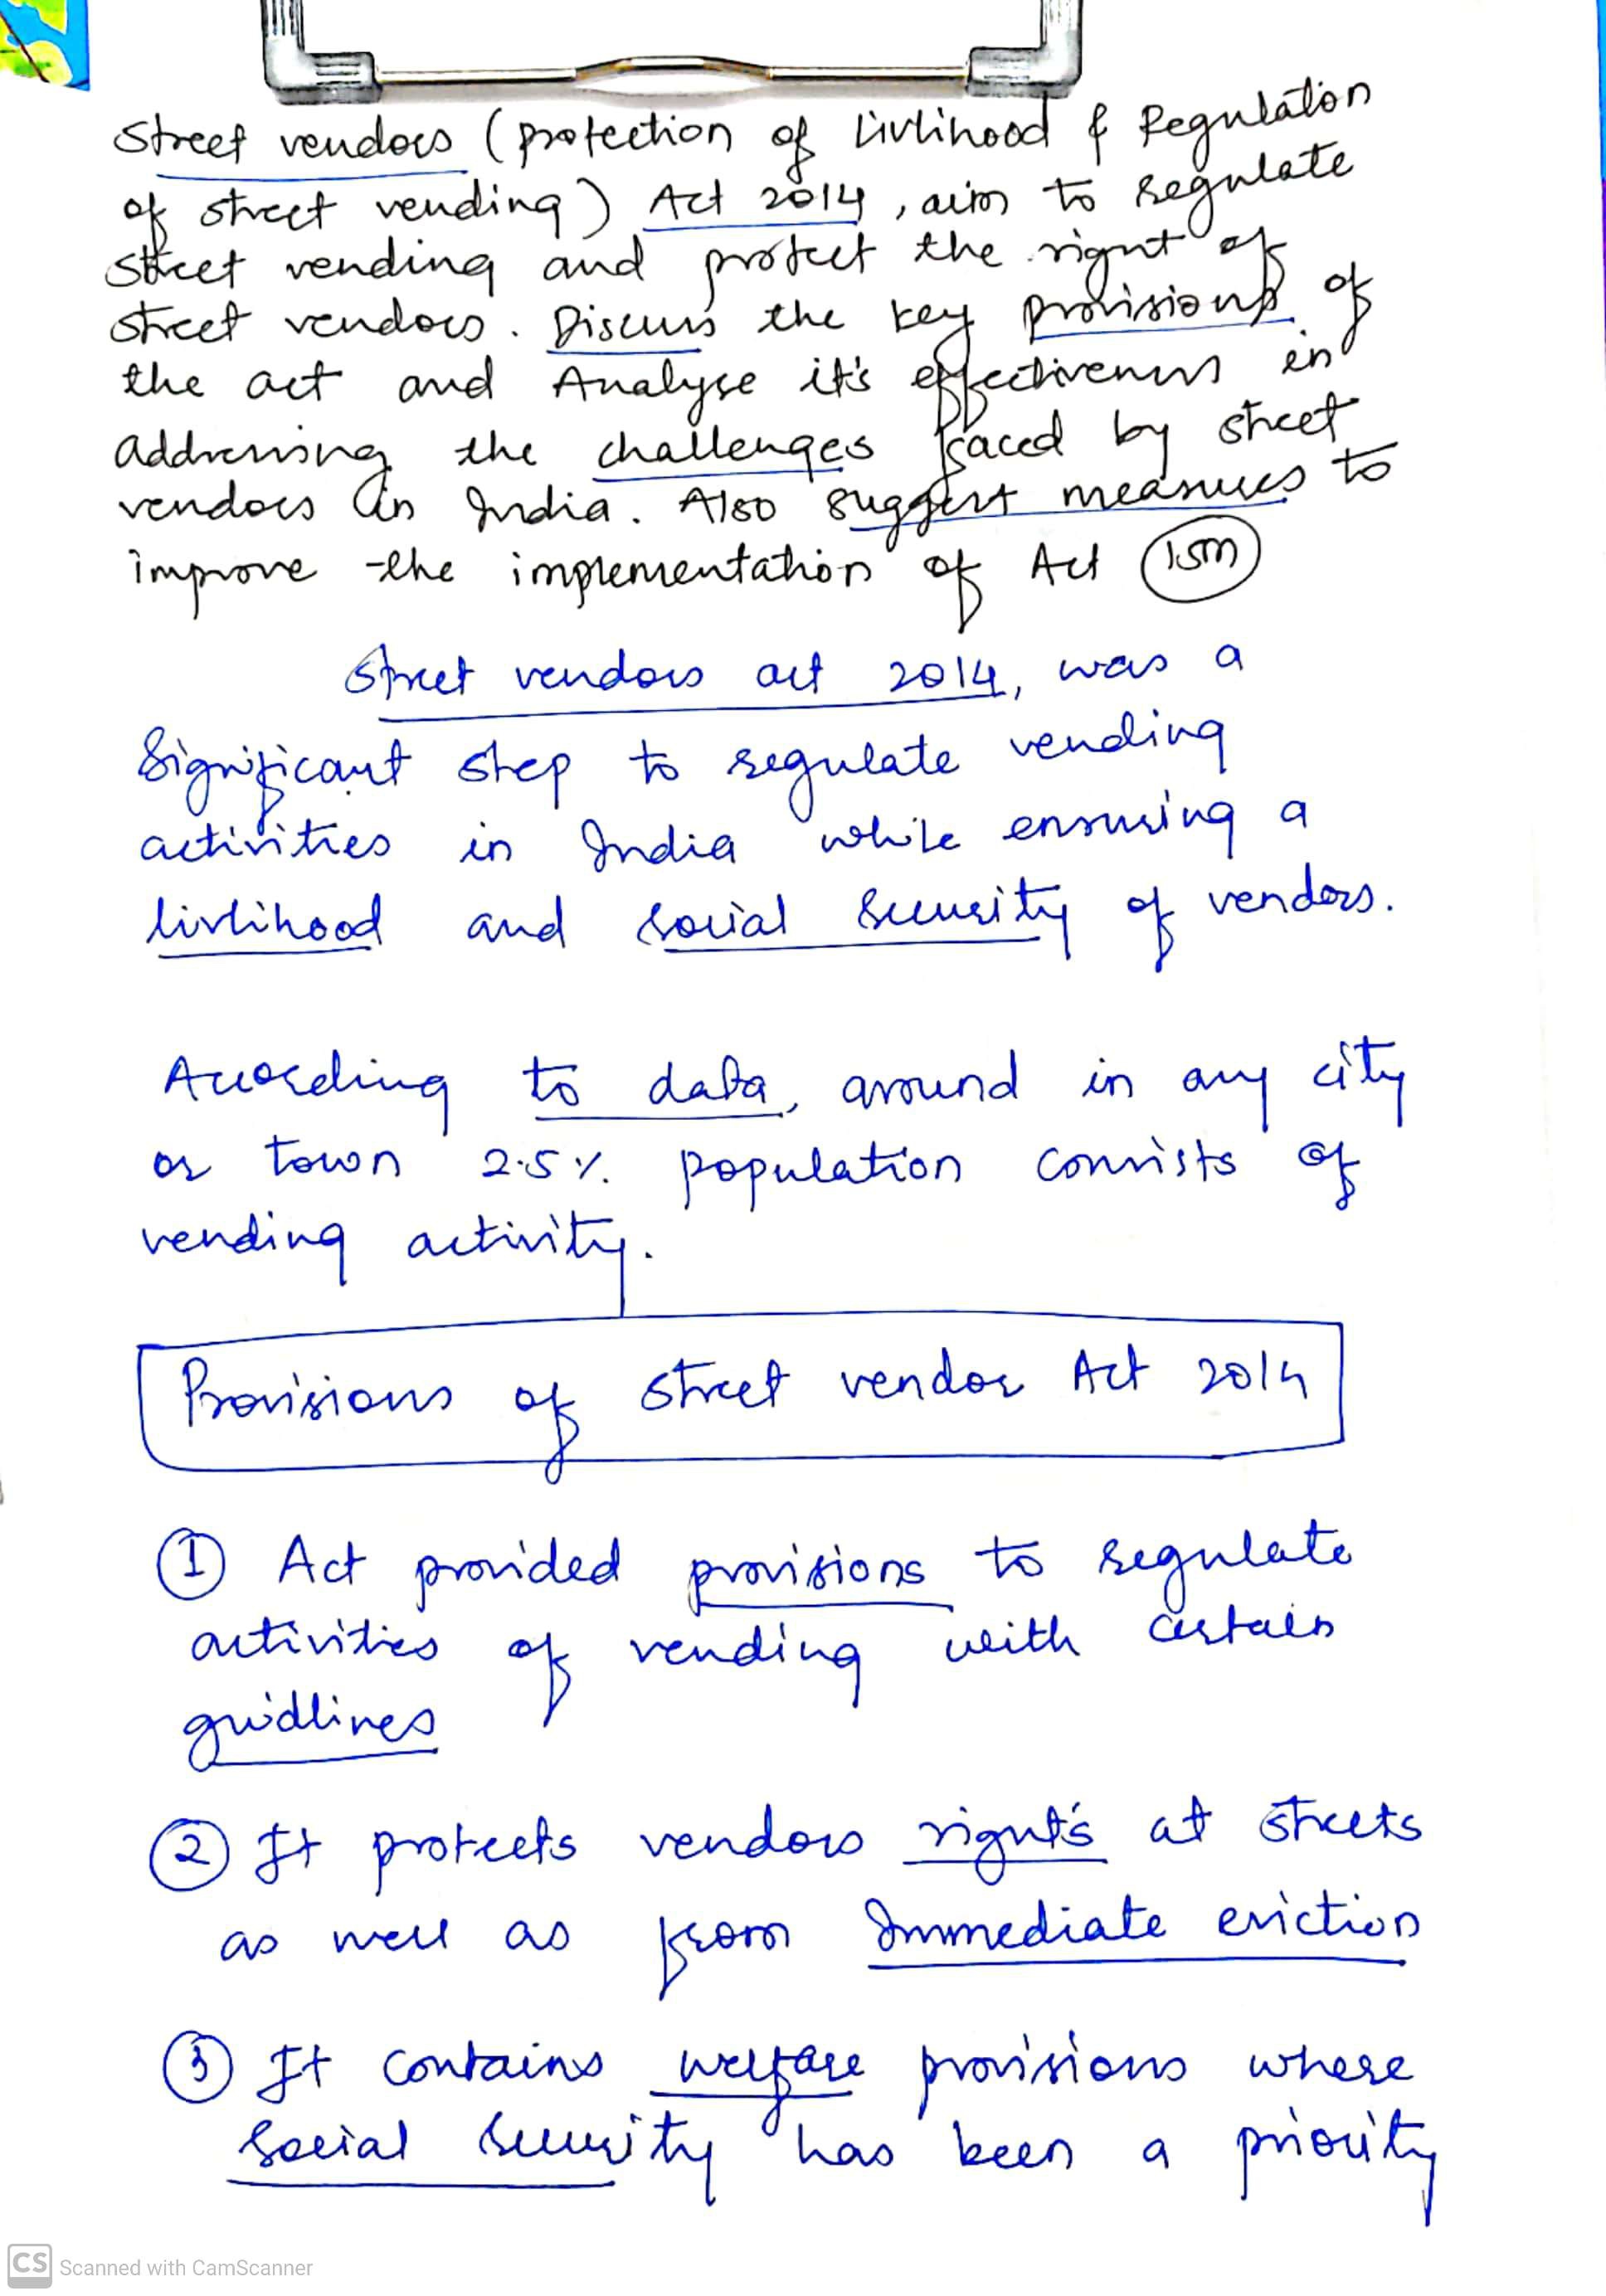 Street vendors (protection of livlihood & Regulation
of street vending) Act 2014, aim to regulate
street vending and protect the right of
street vendors. Discuss the key provisions of
the act and Analyse it's effectiveness in
addressing the challenges faced by street
vendors in India. Also suggest measures to
improve the implementation of Act 15m
Street vendors act 2014, was a
Significant step to regulate vending
activities in India while ensuring a
livlihood and social security of vendors.
According to data, around in any city
or town 2.5% population consists of
vending activity.
Provisions of street vendor Act 2014
① Act provided provisions to regulate
activities of vending with certain
guidlines
② It protects vendors right's at streets
as well as from Immediate eviction
③ It contains welfare provisions where
social security has been a priority
CS Scanned with CamScanner